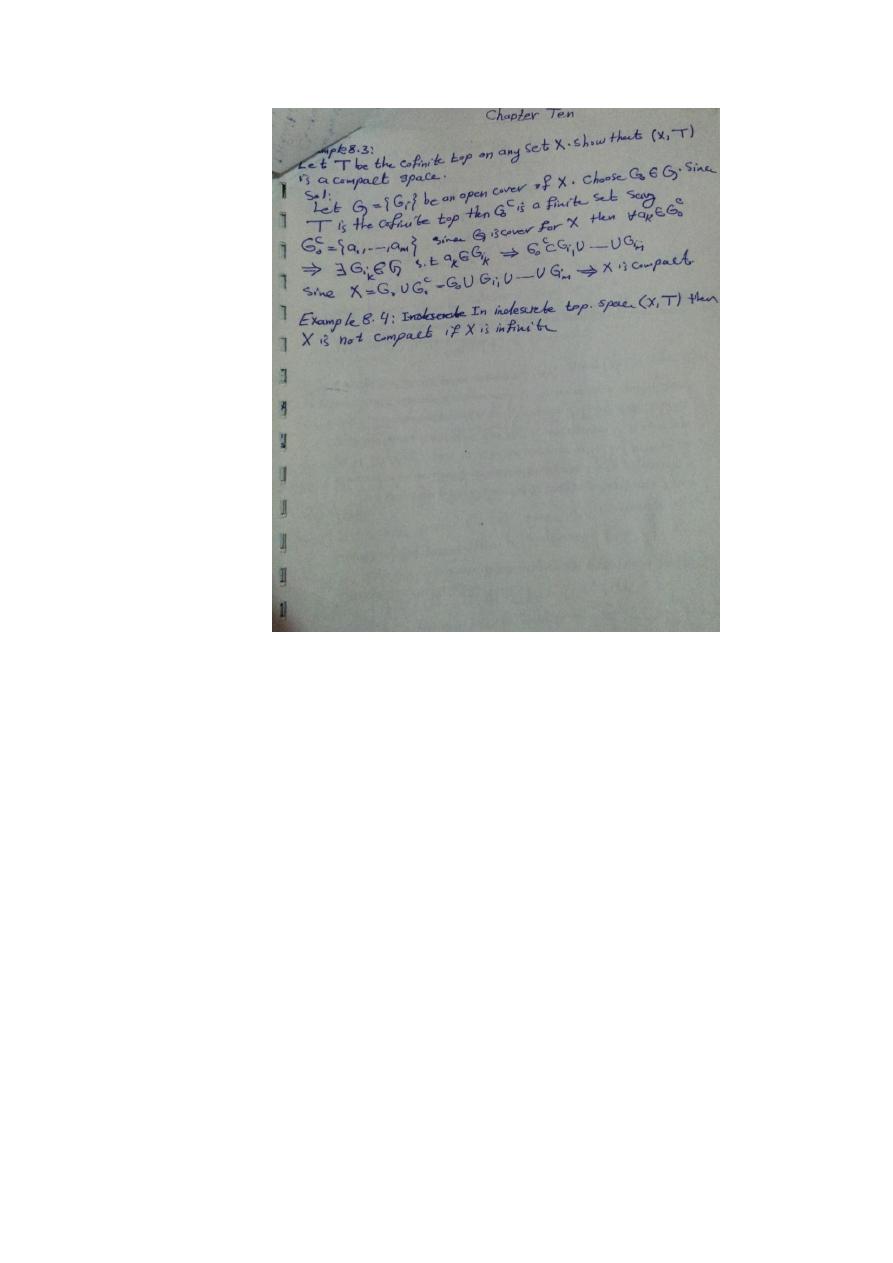 Chapter Ten
mple 8.3:
Let T be the cofinite top on any set X. show that (X,T)
is a compact space.
Sol:
Let G = {Gi} be an open cover of X. Choose G₀ ∈ G. Since
T is the cofinite top then G₀ᶜ is a finite set say
G₀ᶜ = {a₁, ---, aₘ} since G is cover for X then ∀ aₖ ∈ G₀ᶜ
⇒ ∃ Giₖ ∈ G s.t aₖ ∈ Giₖ ⇒ G₀ᶜ ⊂ Gi₁ ∪ --- ∪ Giₘ
Sine X = G₀ ∪ G₀ᶜ = G₀ ∪ Gi₁ ∪ --- ∪ Giₘ ⇒ X is compact
Example 8.4: In indescrete top. space (X,T) then
X is not compact if X is infinite